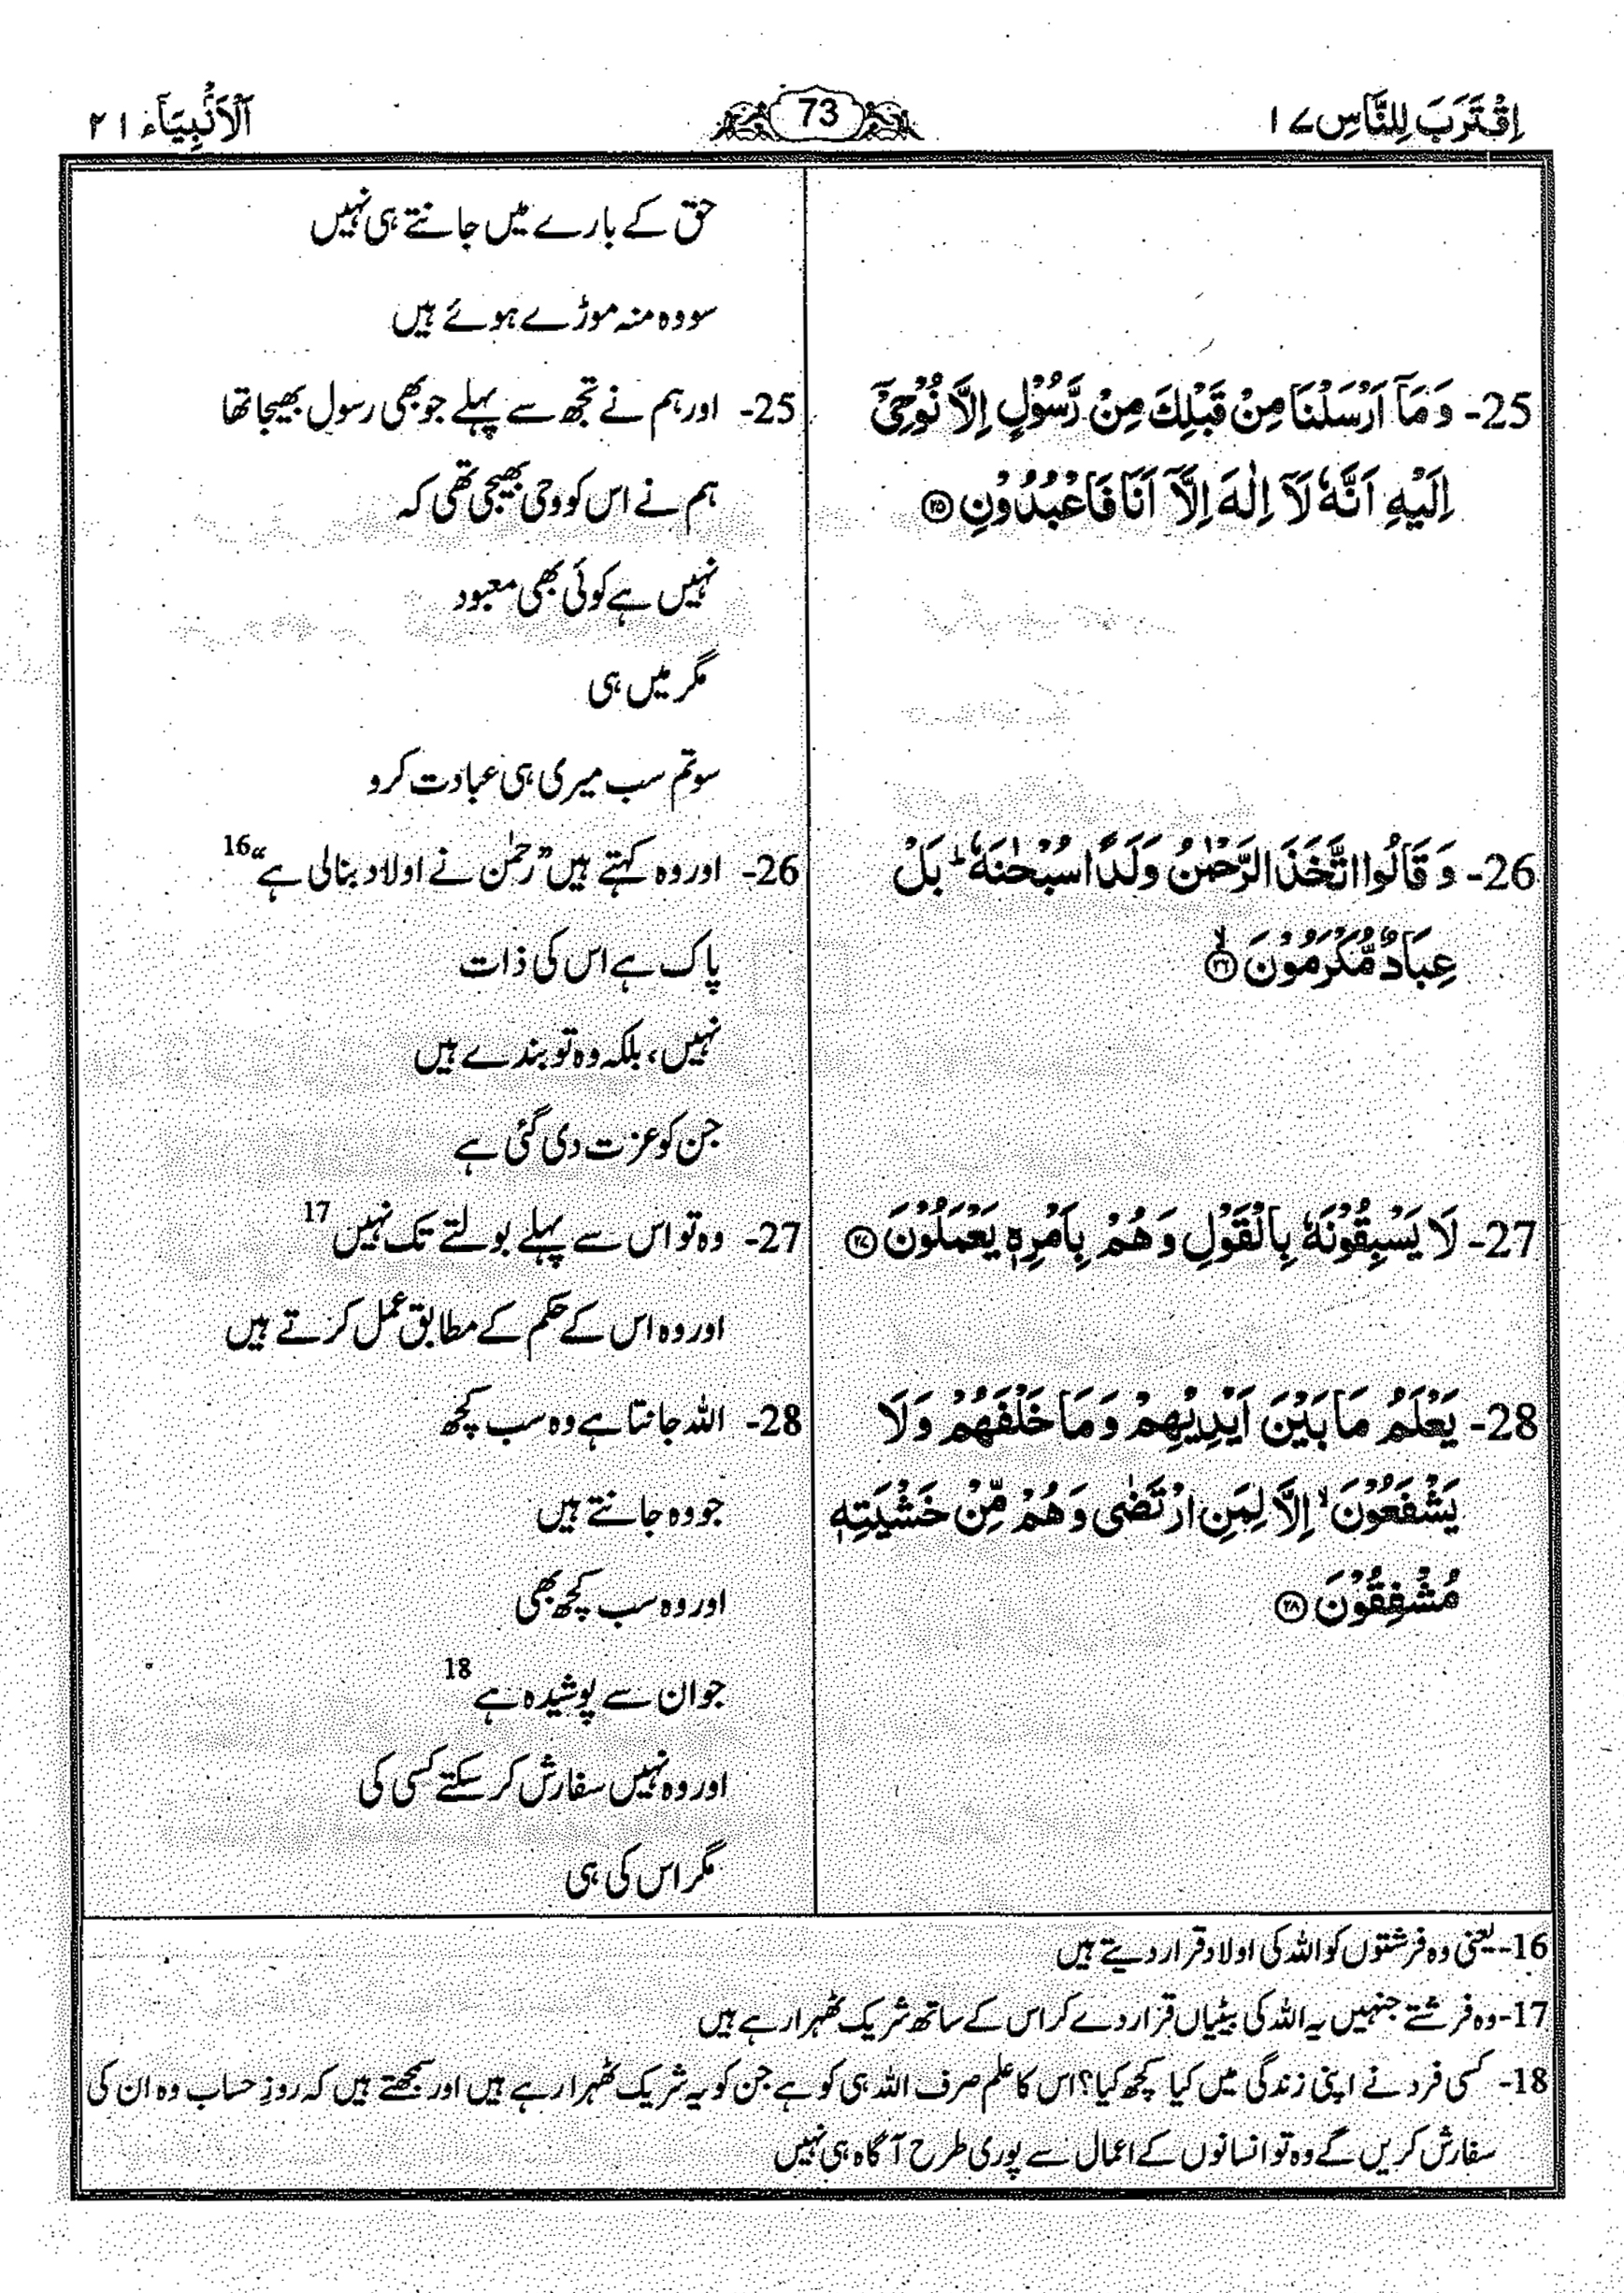 اِقْتَرَبَ لِلنَّاسِ ۱۷
73
اَلْاَنْۢبِيَآء ۲۱
حق کے بارے میں جانتے ہی نہیں
سو وہ منہ موڑے ہوئے ہیں
25- وَمَآ اَرْسَلْنَا مِنْ قَبْلِكَ مِنْ رَّسُوْلٍ اِلَّا نُوْحِيْٓ
اِلَيْهِ اَنَّهٗ لَآ اِلٰهَ اِلَّآ اَنَا فَاعْبُدُوْنِ ۲۵
25- اور ہم نے تجھ سے پہلے جو بھی رسول بھیجا تھا
ہم نے اس کو وحی بھیجی تھی کہ
نہیں ہے کوئی بھی معبود
مگر میں ہی
سو تم سب میری ہی عبادت کرو
26- وَقَالُوا اتَّخَذَ الرَّحْمٰنُ وَلَدًا سُبْحٰنَهٗ ؕ بَلْ
عِبَادٌ مُّكْرَمُوْنَ ۙ ۲۶
26- اور وہ کہتے ہیں ”رحمٰن نے اولاد بنا لی ہے“ 16
پاک ہے اس کی ذات
نہیں، بلکہ وہ تو بندے ہیں
جن کو عزت دی گئی ہے
27- لَا يَسْبِقُوْنَهٗ بِالْقَوْلِ وَهُمْ بِاَمْرِهٖ يَعْمَلُوْنَ ۲۷
27- وہ تو اس سے پہلے بولتے تک نہیں 17
اور وہ اس کے حکم کے مطابق عمل کرتے ہیں
28- يَعْلَمُ مَا بَيْنَ اَيْدِيْهِمْ وَمَا خَلْفَهُمْ وَلَا
يَشْفَعُوْنَ ۙ اِلَّا لِمَنِ ارْتَضٰى وَهُمْ مِّنْ خَشْيَتِهٖ
مُشْفِقُوْنَ ۲۸
28- اللہ جانتا ہے وہ سب کچھ
جو وہ جانتے ہیں
اور وہ سب کچھ بھی
جو ان سے پوشیدہ ہے 18
اور وہ نہیں سفارش کر سکتے کسی کی
مگر اس کی ہی
16- یعنی وہ فرشتوں کو اللہ کی اولاد قرار دیتے ہیں
17- وہ فرشتے جنہیں یہ اللہ کی بیٹیاں قرار دے کر اس کے ساتھ شریک ٹھہرا رہے ہیں
18- کسی فرد نے اپنی زندگی میں کیا کچھ کیا؟ اس کا علم صرف اللہ ہی کو ہے جن کو یہ شریک ٹھہرا رہے ہیں اور سمجھتے ہیں کہ روزِ حساب وہ ان کی
سفارش کریں گے وہ تو انسانوں کے اعمال سے پوری طرح آگاہ ہی نہیں